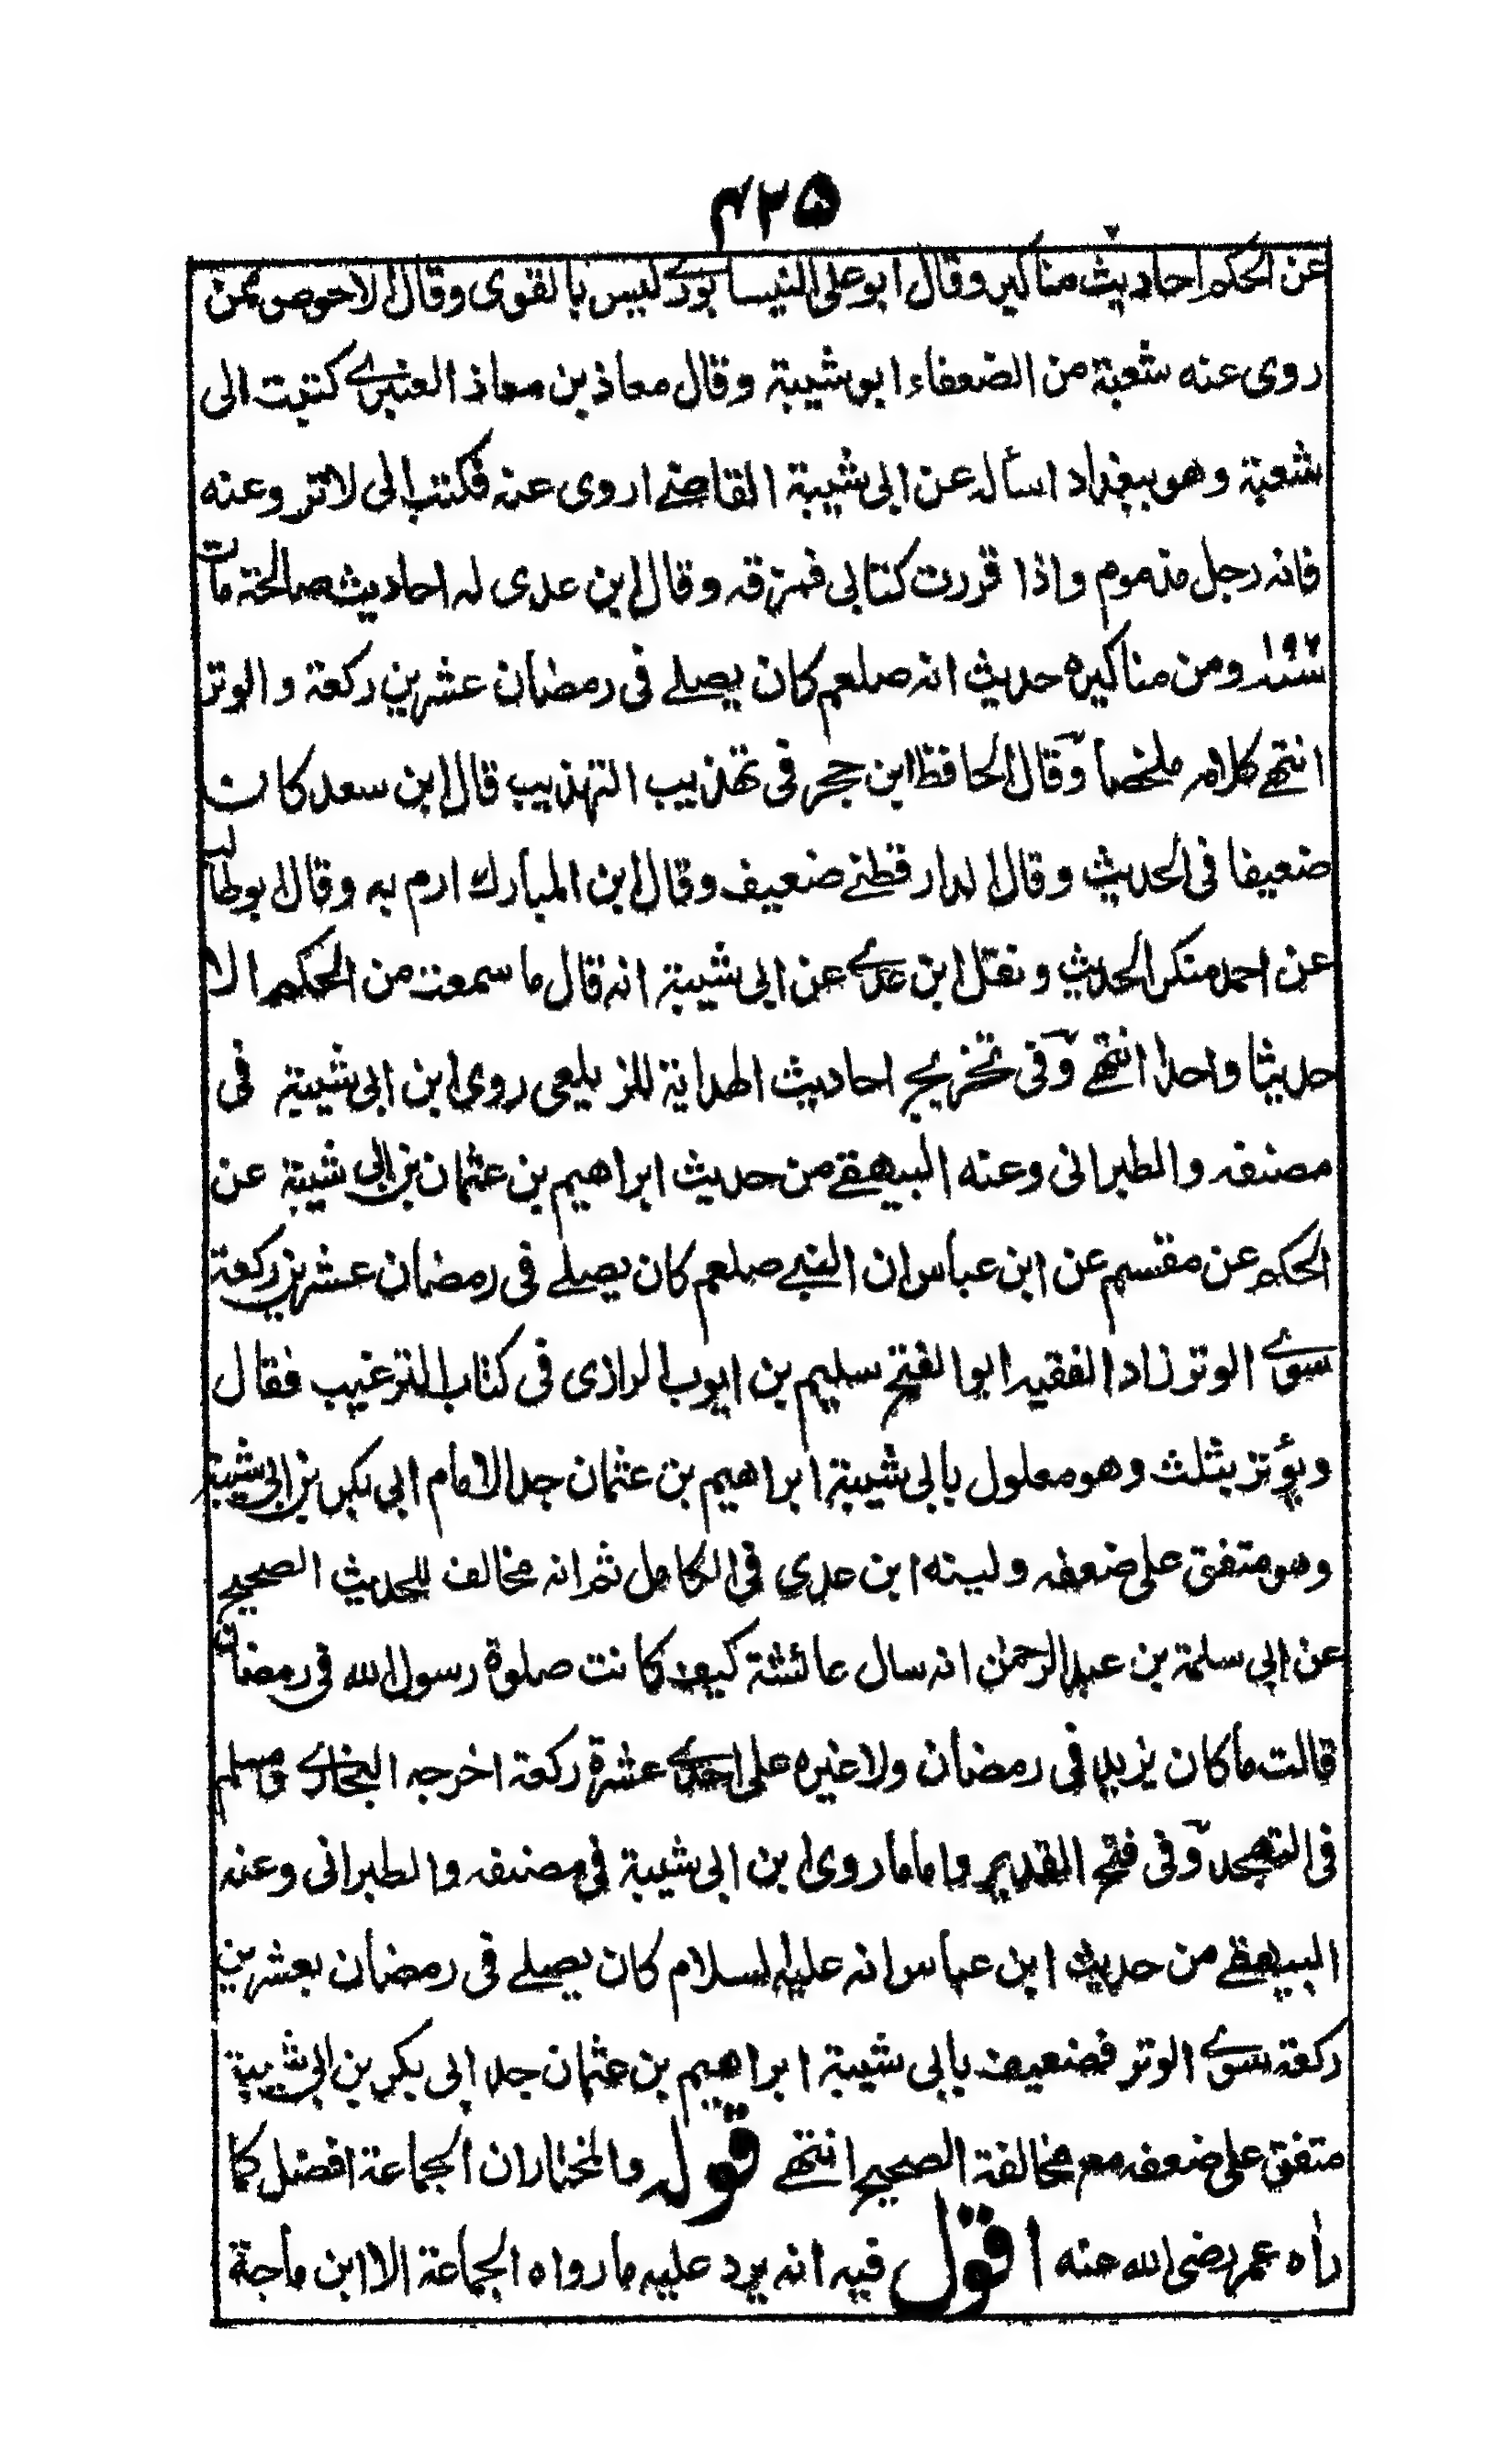 ۴۲۵
عن الحكم احاديث مناكير وقال ابو على النيسابورے ليس بالقوى وقال الاحوص ممن
روى عنه شعبة من الضعفاء ابو شيبة وقال معاذ بن معاذ العنبرے كتبت الى
شعبة وهو ببغداد اسأله عن ابى شيبة القاضے اروى عنه فكتب الى لا تروعنه
فانه رجل مذموم واذا قررت كتابى فمزقه وقال ابن عدى له احاديث صالحة مات
سنه ۱۹۶ ومن مناكيره حديث انه صلعم كان يصلے فى رمضان عشرين ركعة والوتر
انتهے كلامه ملخصا وقال الحافظ ابن حجر فى تهذيب التهذيب قال ابن سعد كان
ضعيفا فى الحديث وقال الدارقطنے ضعيف وقال ابن المبارك ارم به وقال ابوطالب
عن احمد منكر الحديث ونقل ابن عدے عن ابى شيبة انه قال ما سمعت من الحكم الا
حديثا واحدا انتهے وفى تخريج احاديث الهداية للزيلعى روى ابن ابى شيبة فى
مصنفه والطبرانى وعنه البيهقے من حديث ابراهيم بن عثمان بن ابى شيبة عن
الحكم عن مقسم عن ابن عباس ان النبے صلعم كان يصلے فى رمضان عشرين ركعة
سوے الوتر زاد الفقيه ابو الفتح سليم بن ايوب الرازى فى كتاب الترغيب فقال
ويؤتر بثلث وهو معلول بابى شيبة ابراهيم بن عثمان جد الامام ابى بكر بن ابى شيبة
وهو متفق على ضعفه ولينه ابن عدى فى الكامل ثم انه مخالف للحديث الصحيح
عن ابى سلمة بن عبد الرحمٰن انه سال عائشة كيف كانت صلوة رسول الله فى رمضان
قالت ما كان يزيد فى رمضان ولا غيره على احدے عشرة ركعة اخرجه البخارے ومسلم
فى التهجد وفى فتح القدير واما ما روى ابن ابى شيبة فى مصنفه والطبرانى وعنه
البيهقے من حديث ابن عباس انه عليه السلام كان يصلے فى رمضان بعشرين
ركعة سوے الوتر فضعيف بابى شيبة ابراهيم بن عثمان جد ابى بكر بن ابى شيبة
متفق على ضعفه مع مخالفة الصحيح انتهے قوله والمختار ان الجماعة افضل كما
راٰه عمر رضى الله عنه اقول فيه انه يرد عليه ما رواه الجماعة الا ابن ماجة